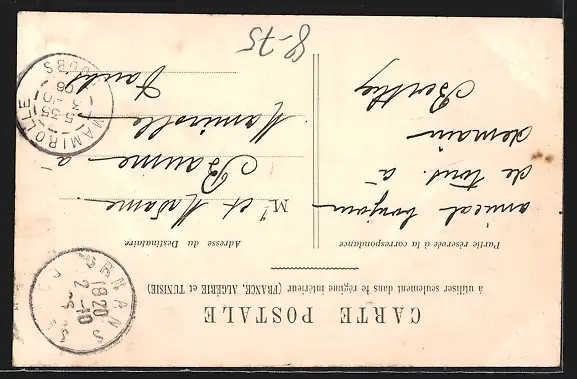 CARTE POSTALE
à utiliser seulement dans le régime intérieur (FRANCE, ALGÉRIE et TUNISIE)
Partie réservée à la correspondance
Adresse du Destinataire
amical bonjour
de tous. à
demain
Berthe
Mr et Madame
Baume
à
Mamirolle
Doubs
ORNANS
18 20
2 -10
MAMIROLLE
5 35
3 -10
06
DOUBS
8-75